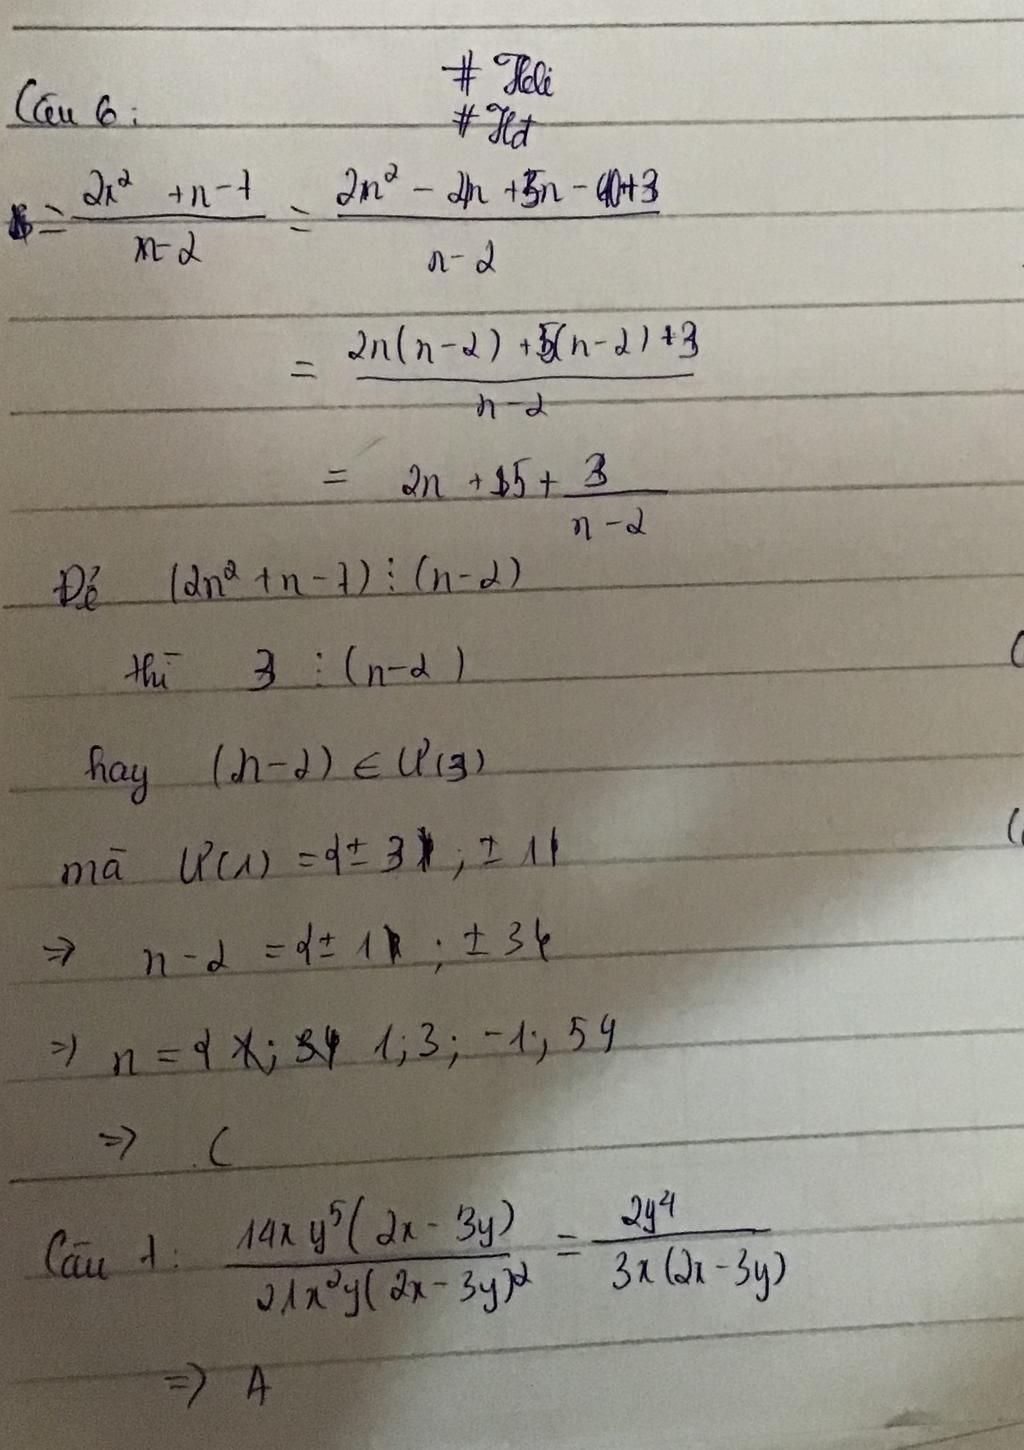 # Heli
Câu 6: # Hđ
= \frac{2x² + n - 7}{n - 2} = \frac{2n² - 4n + 5n - 10 + 3}{n - 2}
= \frac{2n(n - 2) + 5(n - 2) + 3}{n - 2}
= 2n + 5 + \frac{3}{n - 2}
Để (2n² + n - 7) ⋮ (n - 2)
thì 3 ⋮ (n - 2)
hay (n - 2) ∈ Ư(3)
mà Ư(1) = {± 3; ± 1}
⇒ n - 2 = {± 1; ± 3}
⇒ n = { 1; 3; -1; 5}
⇒ C
Câu 7: \frac{14x y⁵(2x - 3y)}{21x²y(2x - 3y)²} = \frac{2y⁴}{3x(2x - 3y)}
⇒ A